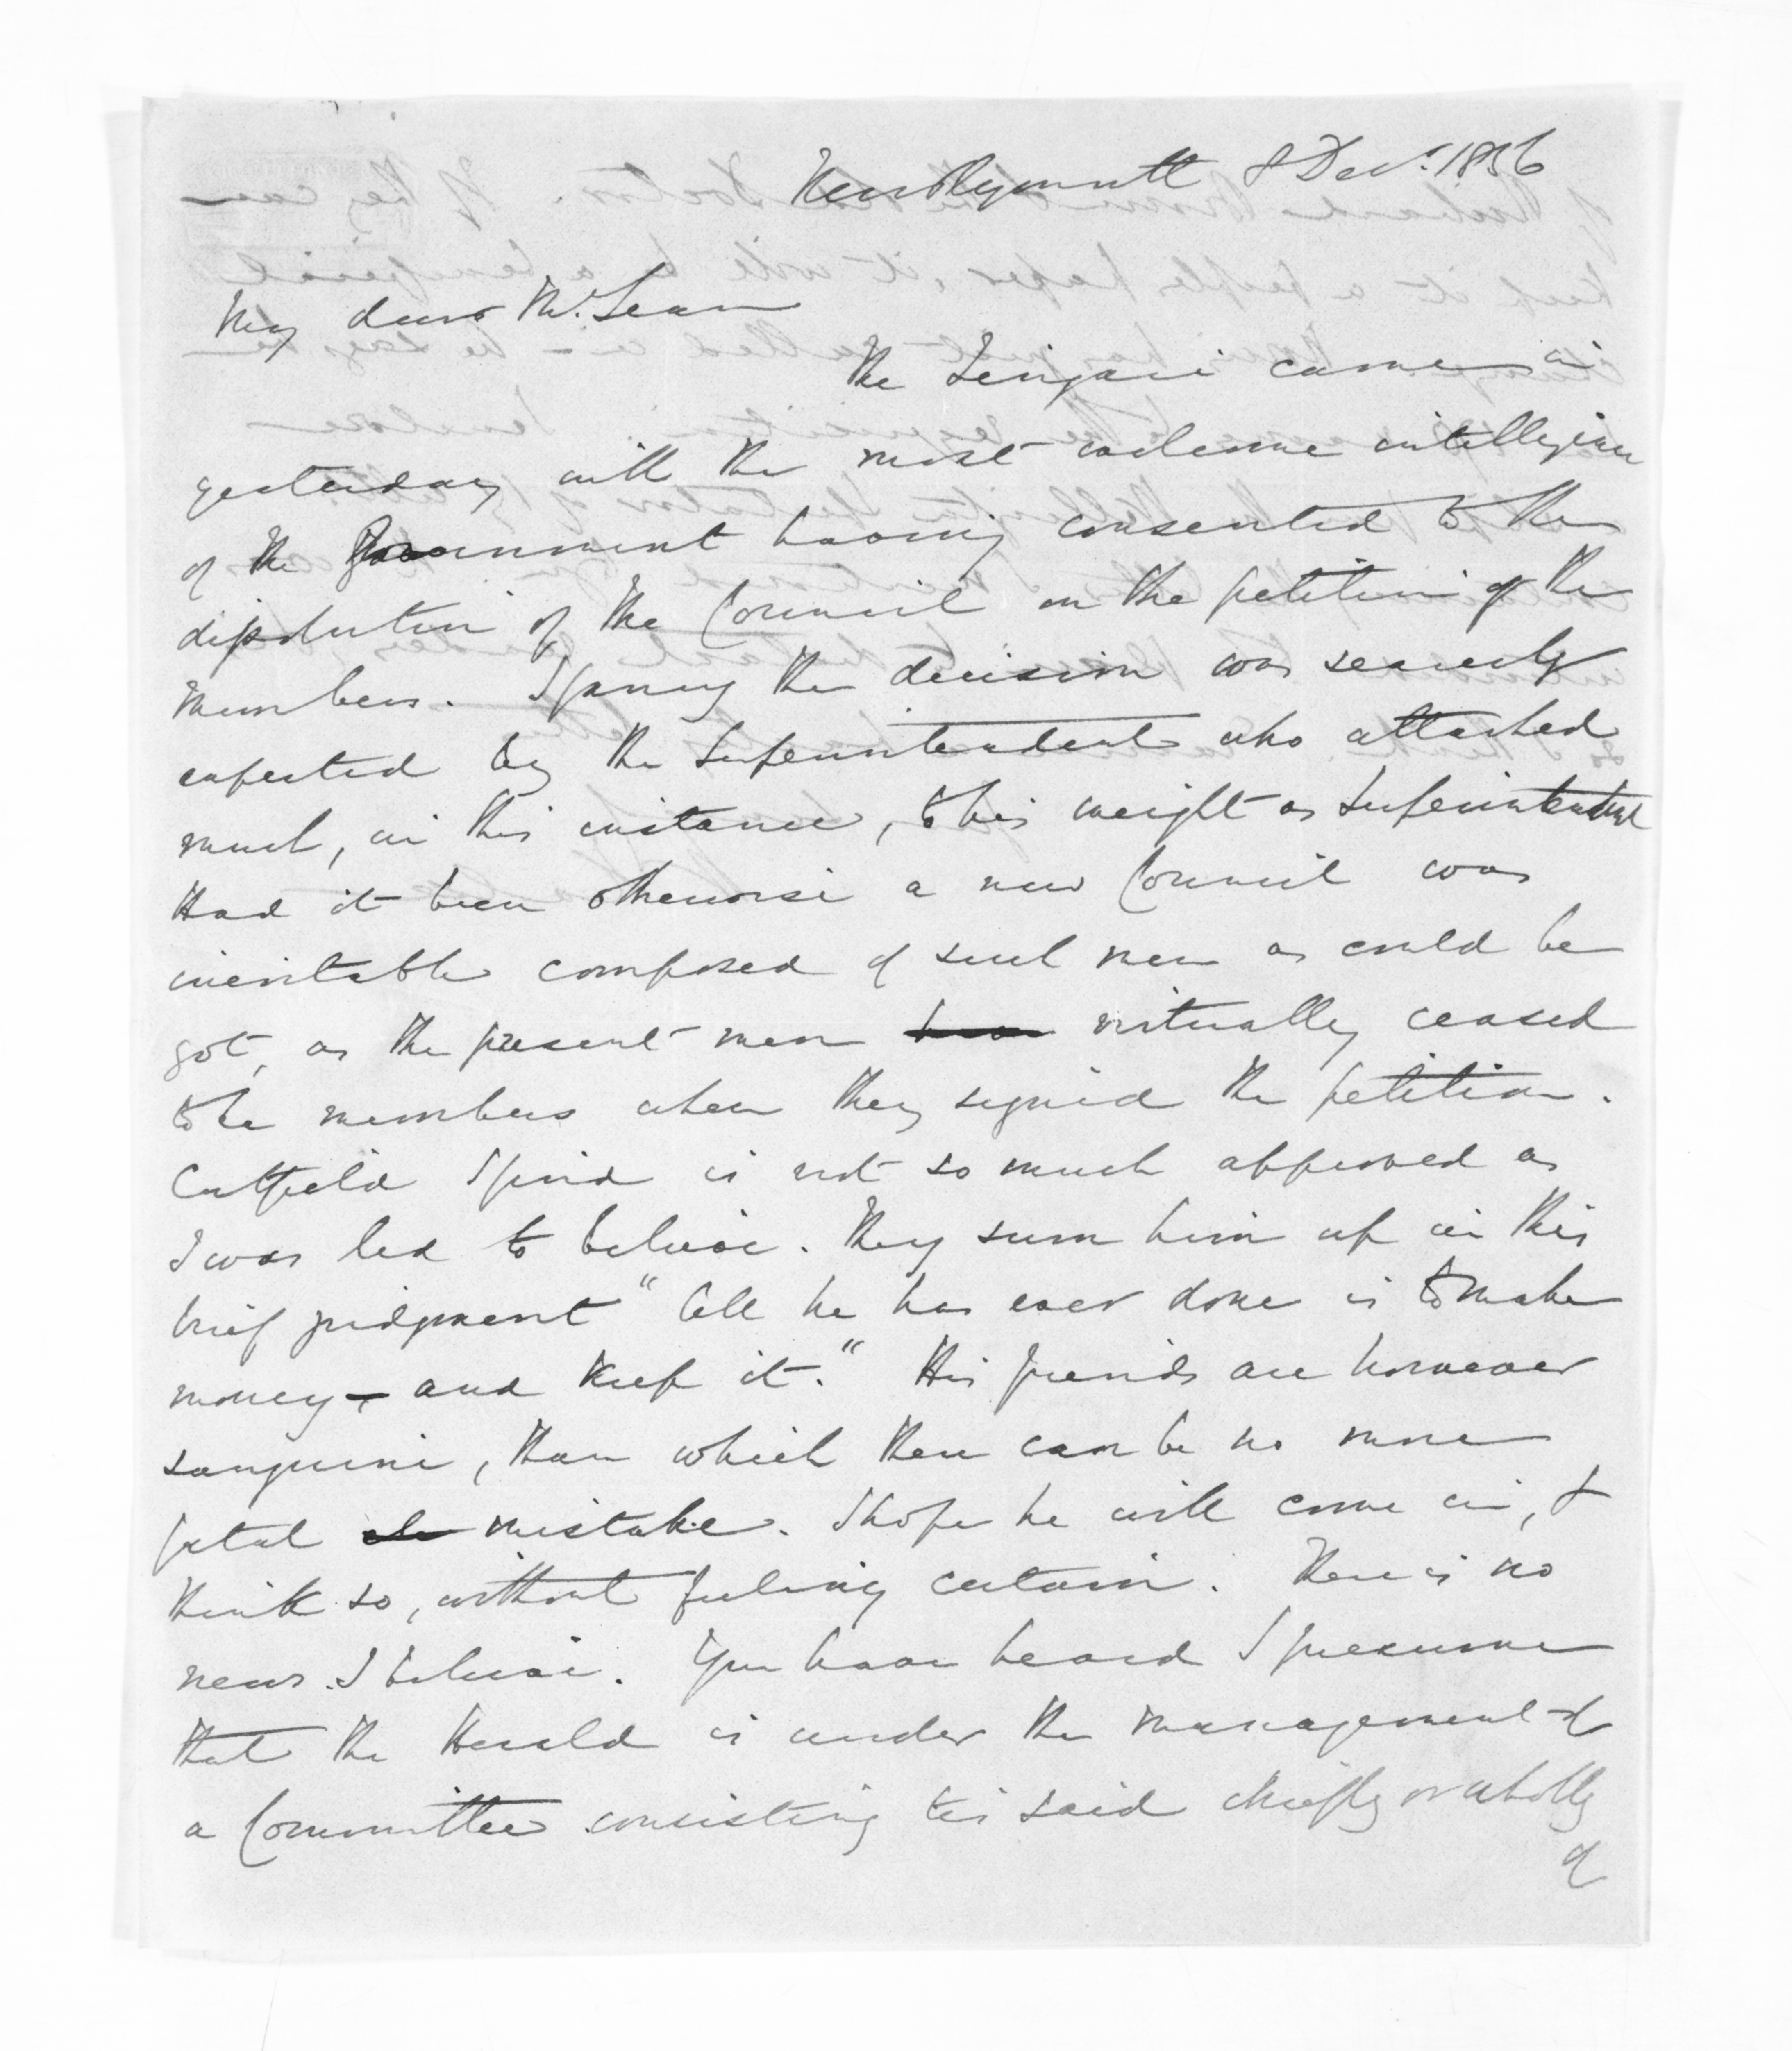 New Plymouth 8 Decr. 1856
My dear McLean
The Zingari came in
yesterday with the most welcome intelligence
of the Government having consented to the
dissolution of the Council on the petition of the
Members. I fancy the decision was scarcely
expected by the Superintendent who attached
much, in this instance, to his weight as Superintendent
Had it been otherwise a new Council was
inevitable composed of such men as could be
got, as the present men virtually ceased
to be members when they signed the petition.
Cutfield I find is not so much approved as
I was led to believe. They sum him up in this
brief judgment "All he has ever done is to make
money — and keep it." His friends are however
sanguine, than which there can be no more
fatal mistake. I hope he will come in, &
think so, without feeling certain. There is no
news I believe. You have heard I presume
that the Herald is under the management of
a Committee consisting tis said chiefly or wholly
of